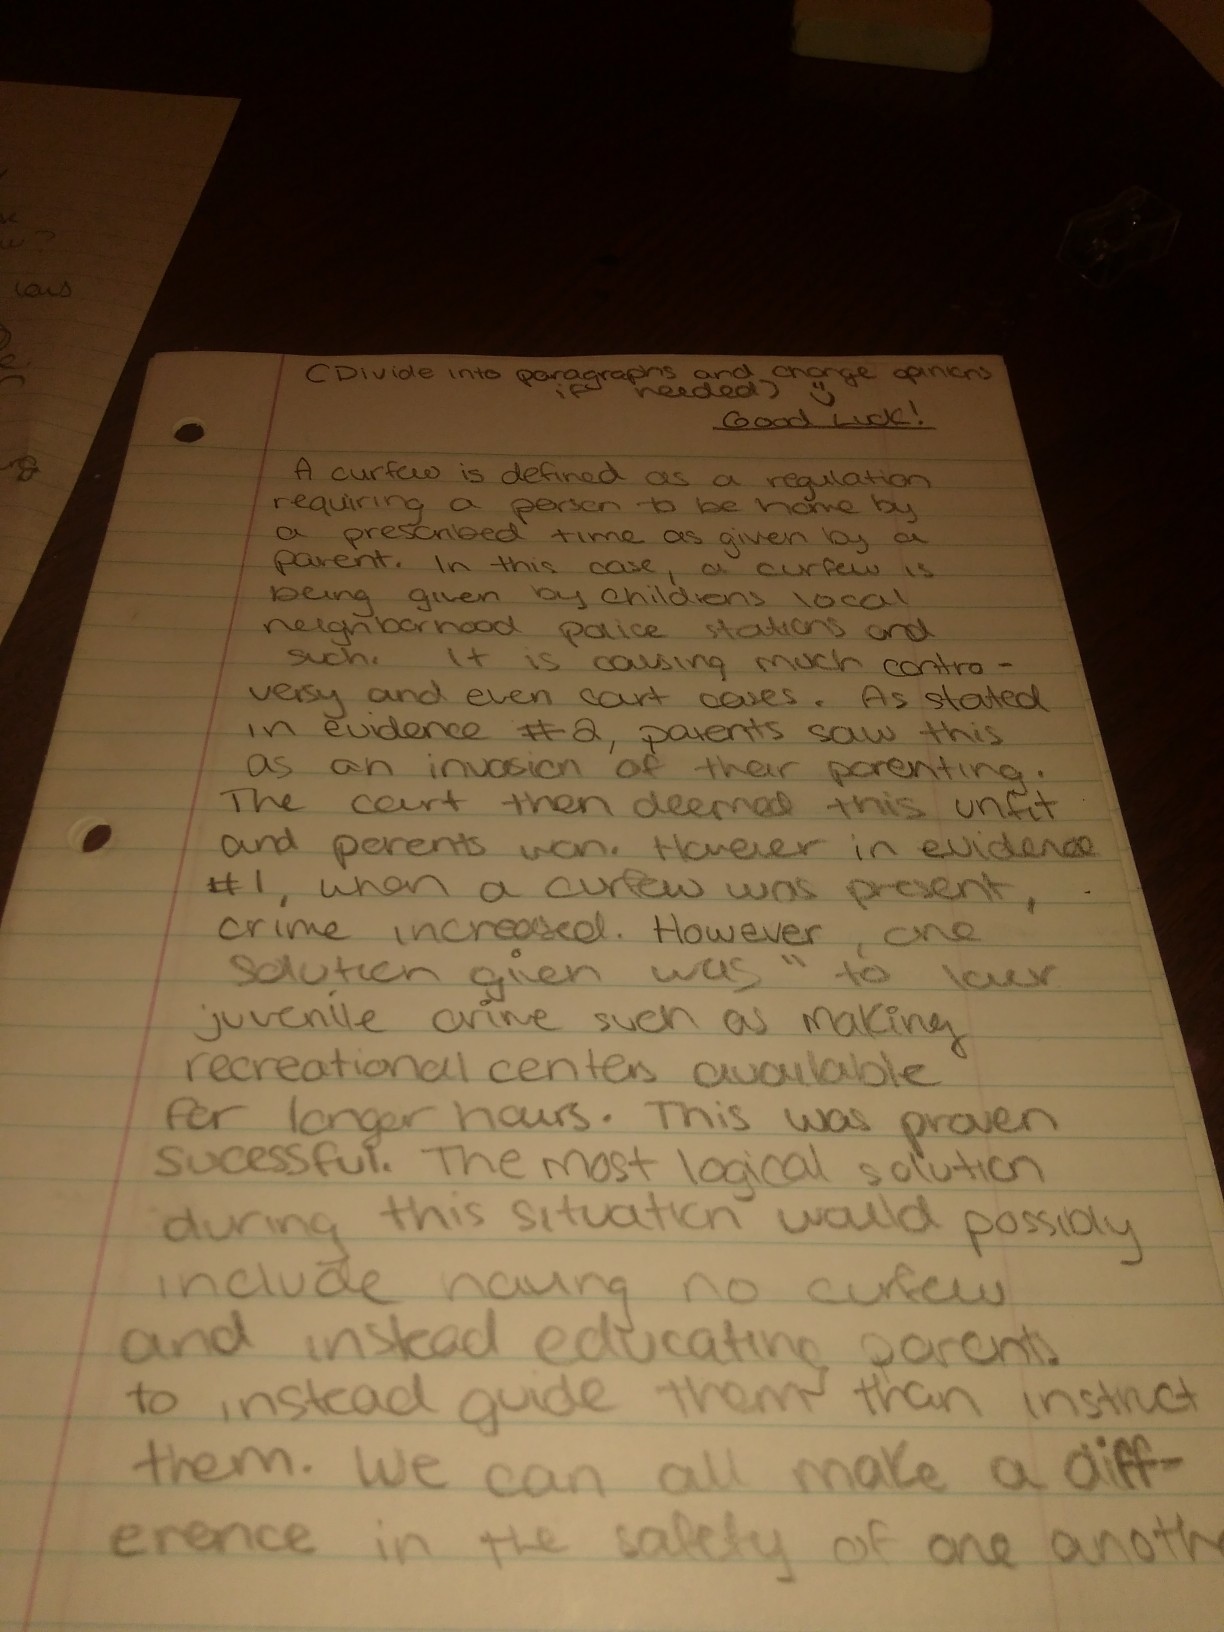 (Divide into paragraphs and change opinions
if needed) 
Good Luck!
A curfew is defined as a regulation
requiring a person to be home by
a prescribed time as given by a
parent. In this case, a curfew is
being given by childrens local
neighborhood police stations and
such. It is causing much contro-
versy and even court cases. As stated
in evidence #2, parents saw this
as an invasion of their parenting.
The court then deemed this unfit
and perents won. However in evidence
#1, when a curfew was present,
crime increased. However, one
solution given was " to lower
juvenile crime such as making
recreational centers available
for longer hours. This was proven
sucessful. The most logical solution
during this situation would possibly
include having no curfew
and instead educating parents
to instead guide them than instruct
them. We can all make a diff-
erence in the safety of one anothe
lows